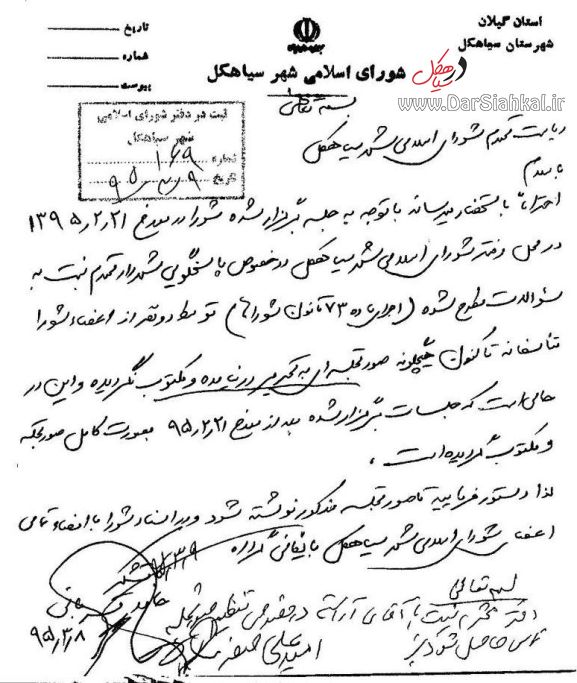 استان گیلان
شهرستان سیاهکل
شورای اسلامی شهر سیاهکل
تاریخ
شماره
پیوست
در سیاهکل
www.DarSiahkal.ir
بسمه تعالی
ثبت در دفتر شورای اسلامی
شهر سیاهکل
شماره ۱۶۹
تاریخ ۹۵/۳/۹
ریاست محترم شورای اسلامی شهر سیاهکل
با سلام
احتراماً باستحضار میرساند با توجه به جلسه برگزار شده شورا در مورخ ۱۳۹۵/۲/۲۱
در محل دفتر شورای اسلامی شهر سیاهکل در خصوص پاسخگویی شهردار محترم نسبت به
سئوالات مطرح شده (اجرای ماده ۷۳ قانون شوراها) توسط دو نفر از اعضاء شورا
متأسفانه تاکنون هیچگونه صورتجلسه‌ای به تحریر در نیامده و مکتوب نگردیده و این در
حالی است که جلسات برگزار شده بعد از مورخ ۹۵/۲/۲۱ بصورت کامل صورتجلسه
و مکتوب گردیده است.
لذا دستور فرمایید تا صورتجلسه مذکور نوشته شود و در اسناد شورا با امضاء تمامی
اعضای شورای اسلامی شهر سیاهکل بایگانی گردد
۹۵/۳/۹
با تشکر
۹۵/۳/۸
بسمه تعالی
دفتر محترم ثبت با آقای آراسته در خصوص تنظیم صورتجلسه
تماس حاصل شود
امیدعلی